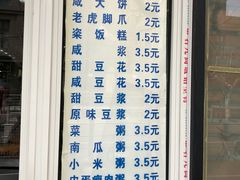 咸大饼 2元
老虎脚爪 2元
粢饭糕 1.5元
咸浆 3.5元
甜豆花 3.5元
咸豆花 3.5元
甜豆浆 2元
原味豆浆 2元
菜粥 3.5元
南瓜粥 3.5元
小米粥 3.5元
皮蛋瘦肉粥 3.5元